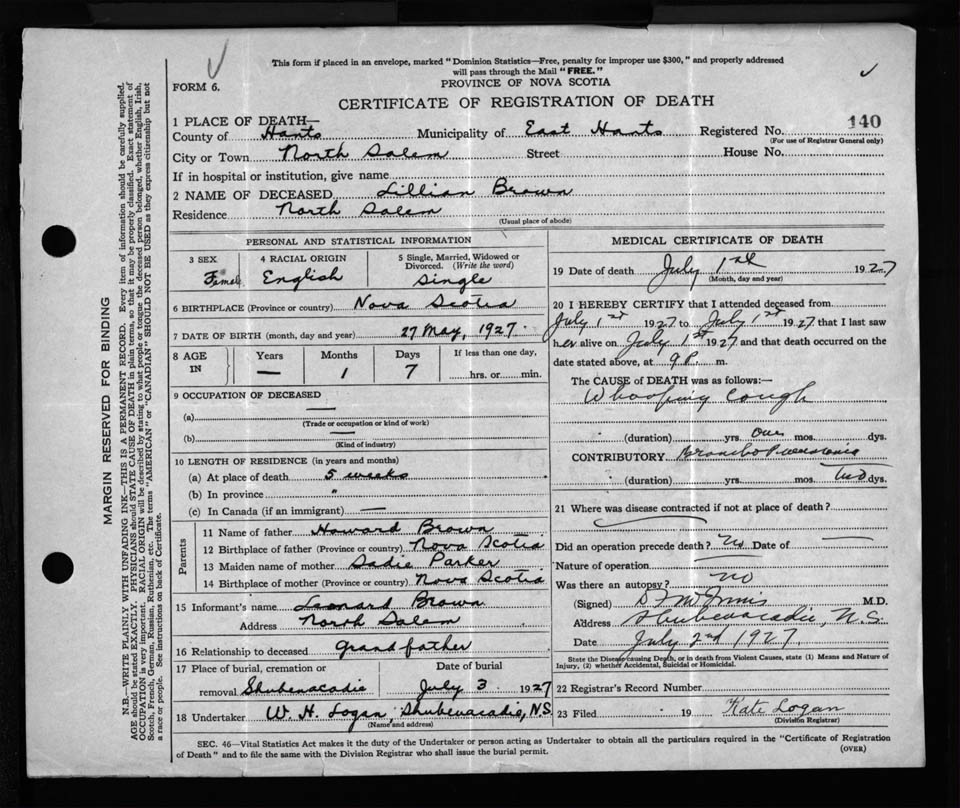 This form if placed in an envelope, marked "Dominion Statistics—Free, penalty for improper use $300," and properly addressed
will pass through the Mail "FREE."
FORM 6.
PROVINCE OF NOVA SCOTIA
CERTIFICATE OF REGISTRATION OF DEATH
1 PLACE OF DEATH—
County of Hants Municipality of East Hants Registered No. 140
(For use of Registrar General only)
City or Town North Salem Street House No.
If in hospital or institution, give name
2 NAME OF DECEASED Lillian Brown
Residence North Salem
(Usual place of abode)
PERSONAL AND STATISTICAL INFORMATION
3 SEX 4 RACIAL ORIGIN 5 Single, Married, Widowed or
Divorced. (Write the word)
Female English Single
6 BIRTHPLACE (Province or country) Nova Scotia
7 DATE OF BIRTH (month, day and year) 27 May, 1927.
8 AGE IN Years Months Days If less than one day,
— 1 7 hrs. or min.
9 OCCUPATION OF DECEASED
—
(a)
(Trade or occupation or kind of work)
—
(b)
(Kind of industry)
10 LENGTH OF RESIDENCE (in years and months)
(a) At place of death 5 weeks
(b) In province "
(c) In Canada (if an immigrant) —
Parents
11 Name of father Howard Brown
12 Birthplace of father (Province or country) Nova Scotia
13 Maiden name of mother Sadie Parker
14 Birthplace of mother (Province or country) Nova Scotia
15 Informant's name Leonard Brown
Address North Salem
16 Relationship to deceased grandfather
17 Place of burial, cremation or Date of burial
removal Shubenacadie July 3 1927
18 Undertaker W. H. Logan, Shubenacadie, N.S.
(Name and address)
MEDICAL CERTIFICATE OF DEATH
19 Date of death July 1st 1927
(Month, day and year)
20 I HEREBY CERTIFY that I attended deceased from
July 1st 1927 to July 1st 1927 that I last saw
her alive on July 1st 1927 and that death occurred on the
date stated above, at 9 P. m.
The CAUSE OF DEATH was as follows:—
Whooping Cough
(duration) yrs. one mos. dys.
CONTRIBUTORY Broncho Pneumonia
(duration) yrs. mos. Two dys.
21 Where was disease contracted if not at place of death?
Did an operation precede death? No Date of —
Nature of operation —
Was there an autopsy? no
(Signed) M.D.
Address Shubenacadie, N.S.
Date July 2nd 1927.
State the Disease causing Death, or in death from Violent Causes, state (1) Means and Nature of
Injury, (2) whether Accidental, Suicidal or Homicidal.
22 Registrar's Record Number
23 Filed 19 Kate Logan
(Division Registrar)
SEC. 46—Vital Statistics Act makes it the duty of the Undertaker or person acting as Undertaker to obtain all the particulars required in the "Certificate of Registration
of Death" and to file the same with the Division Registrar who shall issue the burial permit.
(OVER)
MARGIN RESERVED FOR BINDING
N.B.—WRITE PLAINLY WITH UNFADING INK—THIS IS A PERMANENT RECORD. Every item of information should be carefully supplied.
AGE should be stated EXACTLY. PHYSICIANS should STATE CAUSE OF DEATH in plain terms, so that it may be properly classified. Exact statement of
OCCUPATION is very important. RACIAL ORIGIN will be described by stating to what people or tongue the deceased person belonged, whether English, Irish,
Scotch, French, German, Russian, Ruthenian, etc. The terms "AMERICAN" or "CANADIAN" SHOULD NOT BE USED as they express citizenship but not
a race or people. See instructions on back of Certificate.